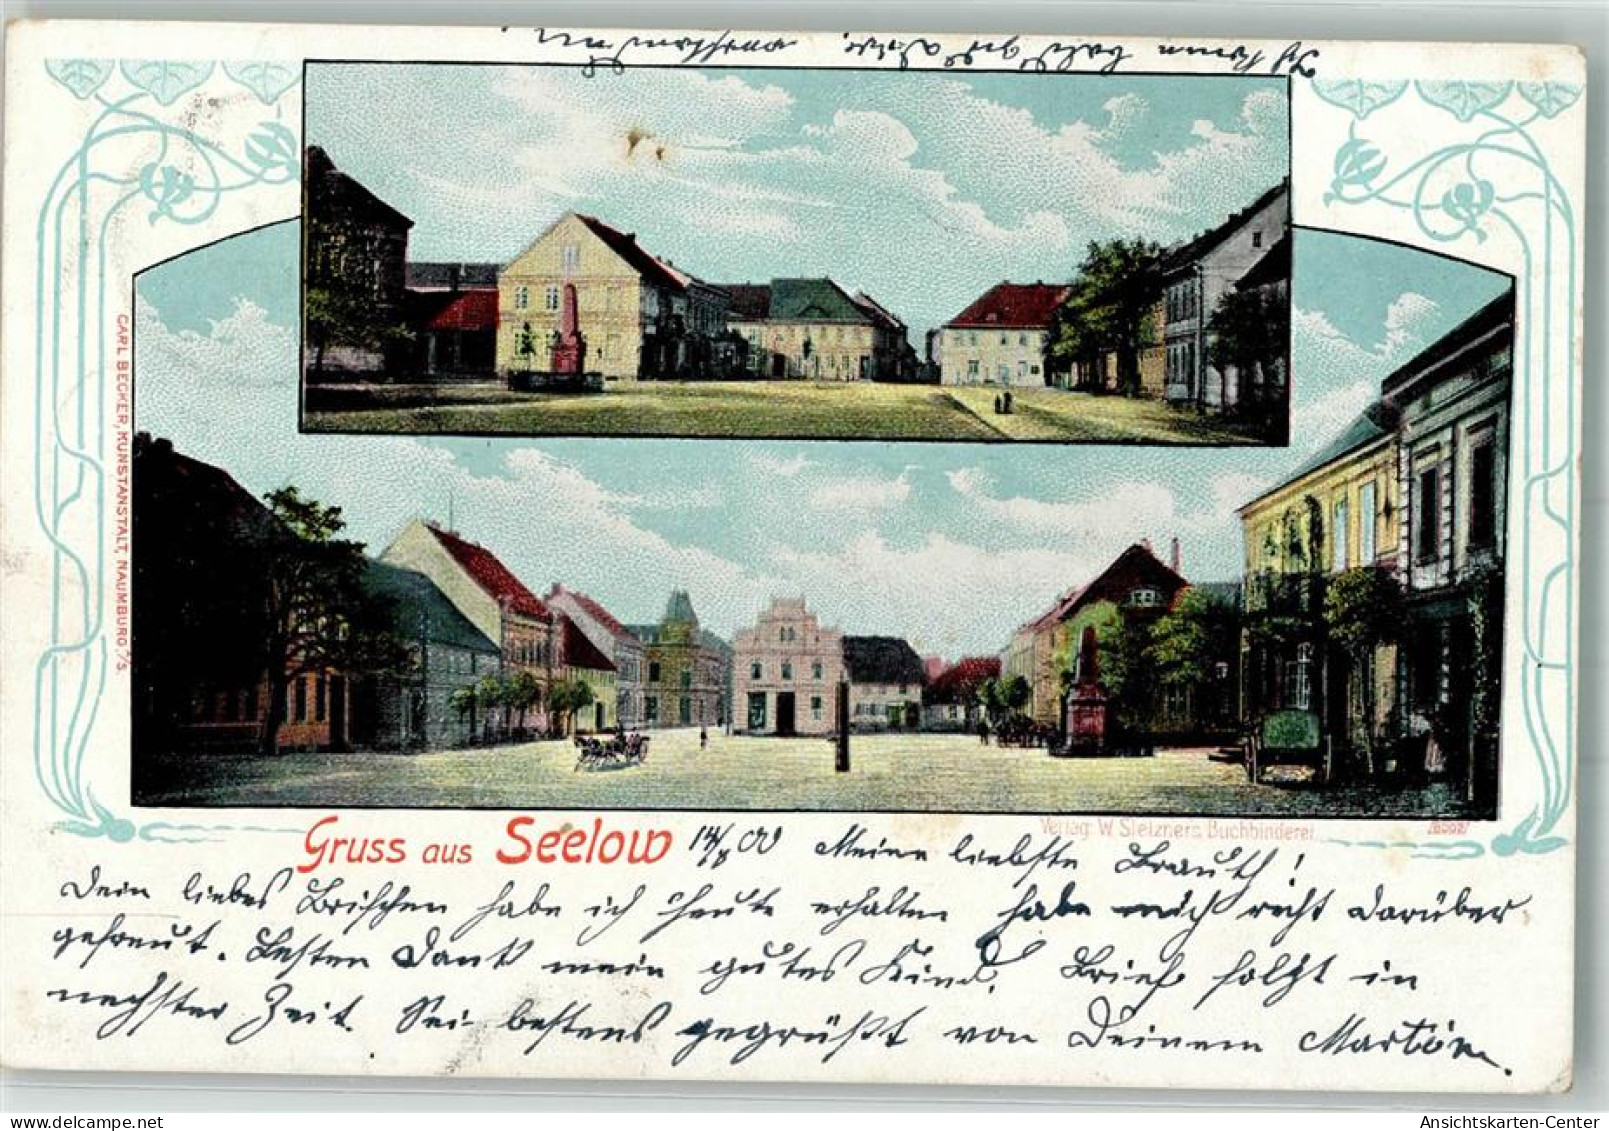 CARL BECKER, KUNSTANSTALT, NAUMBURG a/S.
Verlag: W. Stelzners Buchbinderei
Gruss aus Seelow 14/8 00 Meine liebste Brauth!
Dein liebes Brifchen habe ich heute erhalten habe mich recht darüber
gefreut. Besten Dank mein gutes Kind. Brief folgt in
nechster Zeit. Sei bestens gegrüßt von Deinem Martin.
Ansichtskarten-Center